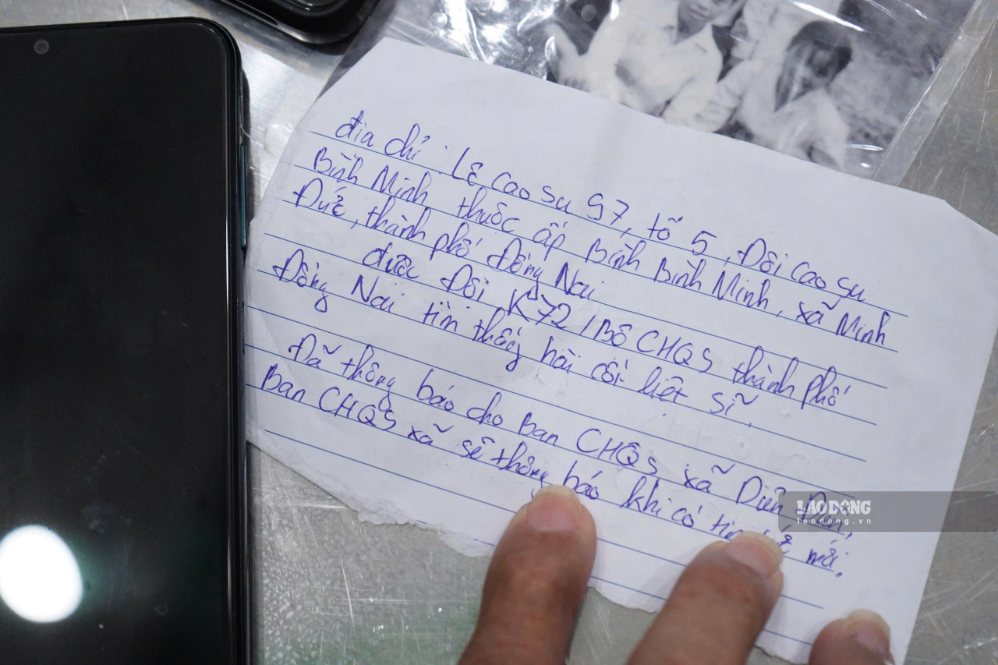 địa chỉ: Lê cao su 97, tổ 5, Đội cao su
Bình Minh thuộc ấp Bình Minh, xã Minh
Đức, thành phố Đồng Nai
được Đội K72/Bộ CHQS thành phố
Đồng Nai tìm thấy hài cốt liệt sĩ.
Đã thông báo cho Ban CHQS xã Diễn
Ban CHQS xã sẽ thông báo khi có mới.
LAO ĐỘNG
laodong.vn